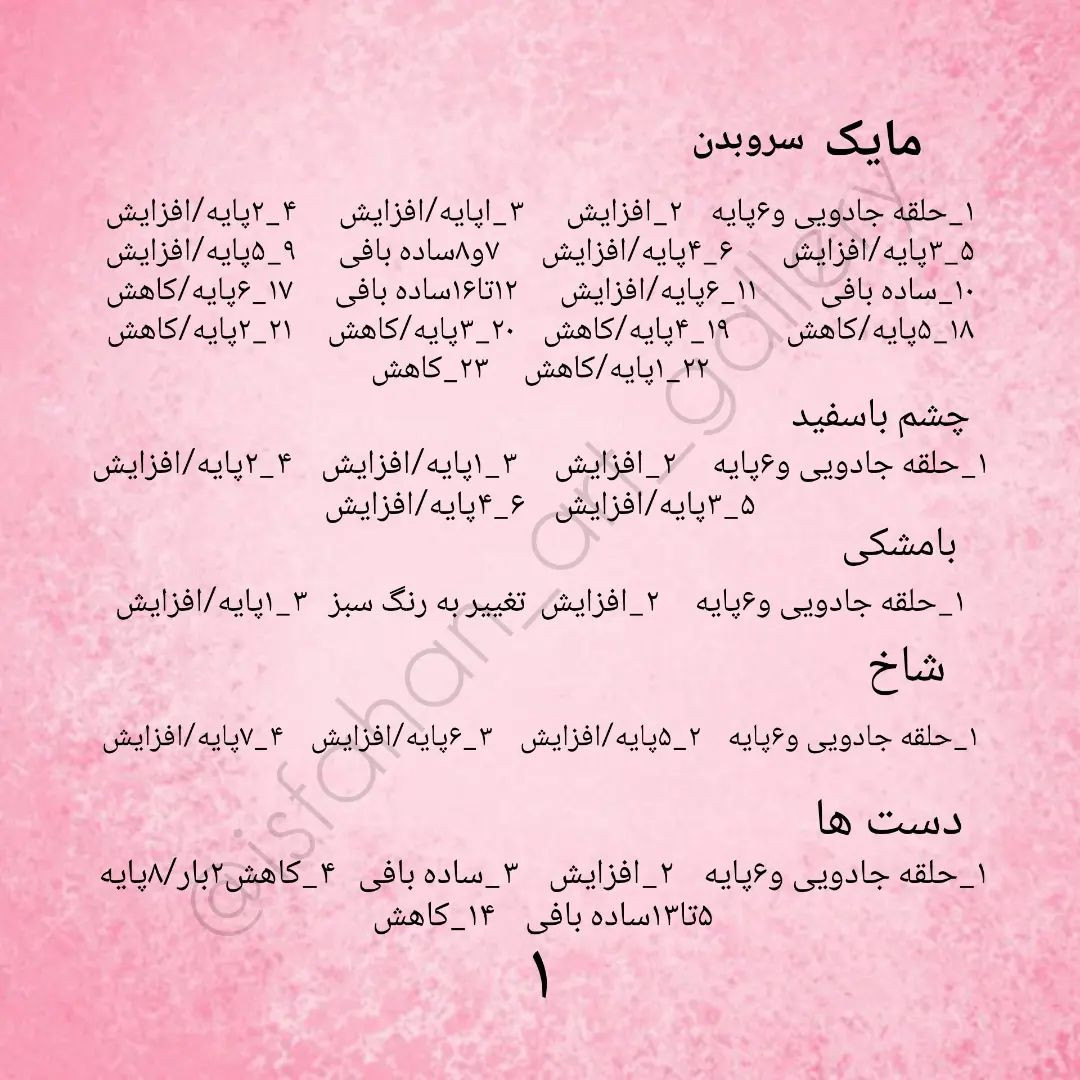 مایک سروبدن
۱_حلقه جادویی و۶پایه ۲_افزایش ۳_اپایه/افزایش ۴_۲پایه/افزایش
۵_۳پایه/افزایش ۶_۴پایه/افزایش ۷و۸ساده بافی ۹_۵پایه/افزایش
۱۰_ساده بافی ۱۱_۶پایه/افزایش ۱۲تا۱۶ساده بافی ۱۷_۶پایه/کاهش
۱۸_۵پایه/کاهش ۱۹_۴پایه/کاهش ۲۰_۳پایه/کاهش ۲۱_۲پایه/کاهش
۲۲_۱پایه/کاهش ۲۳_کاهش
چشم باسفید
۱_حلقه جادویی و۶پایه ۲_افزایش ۳_۱پایه/افزایش ۴_۲پایه/افزایش
۵_۳پایه/افزایش ۶_۴پایه/افزایش
بامشکی
۱_حلقه جادویی و۶پایه ۲_افزایش تغییر به رنگ سبز ۳_۱پایه/افزایش
شاخ
۱_حلقه جادویی و۶پایه ۲_۵پایه/افزایش ۳_۶پایه/افزایش ۴_۷پایه/افزایش
دست ها
۱_حلقه جادویی و۶پایه ۲_افزایش ۳_ساده بافی ۴_کاهش۲بار/۸پایه
۵تا۱۳ساده بافی ۱۴_کاهش
۱
@isfahani_art_gallery